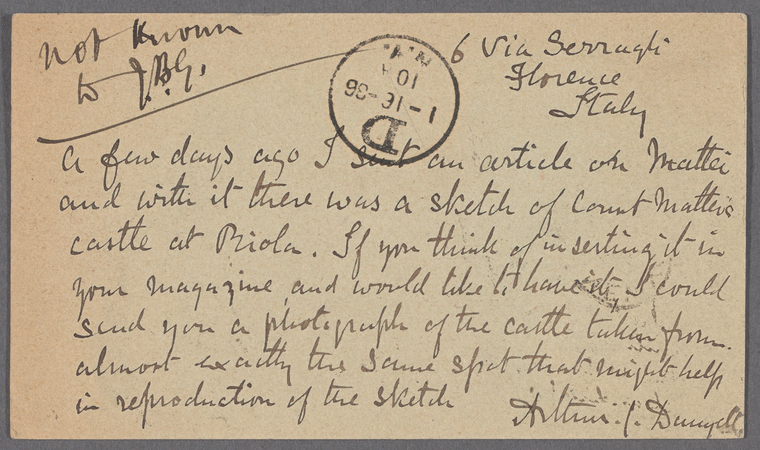 not known
to J.B.G.
N.Y.
10 A
1-16-86
D
6 Via Serragli
Florence
Italy
A few days ago I sent an article on Mattei
and with it there was a sketch of Count Mattei's
castle at Riola. If you think of inserting it in
your magazine and would like to have it, I could
send you a photograph of the castle taken from
almost exactly the same spot that might help
in reproduction of the sketch
Arthur J.